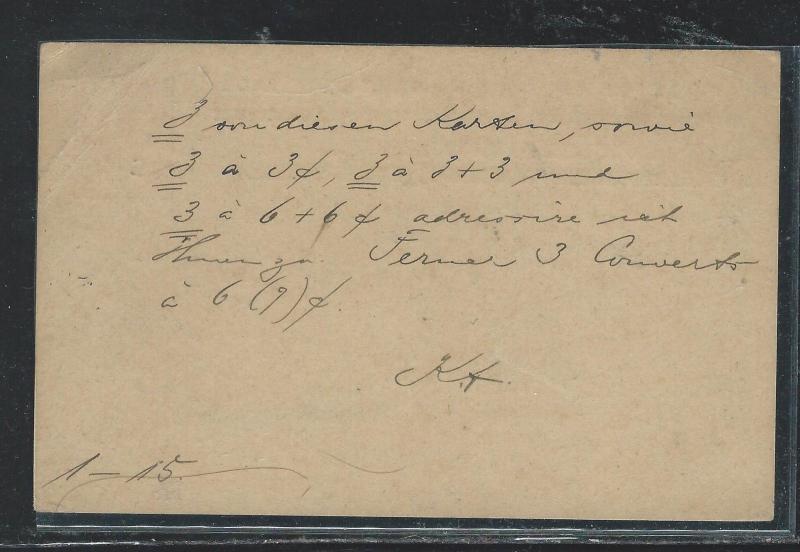 3 von diesen Karten, sowie
3 à 3¢, 3 à 3+3 und
3 à 6+6¢ adressire ich
Ihnen zu. Ferner 3 Couverts
à 6 (9)¢.
K.A.
1-15.